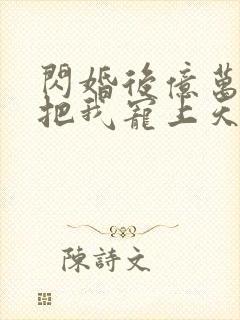 閃婚後億萬
把我寵上天
陳詩文